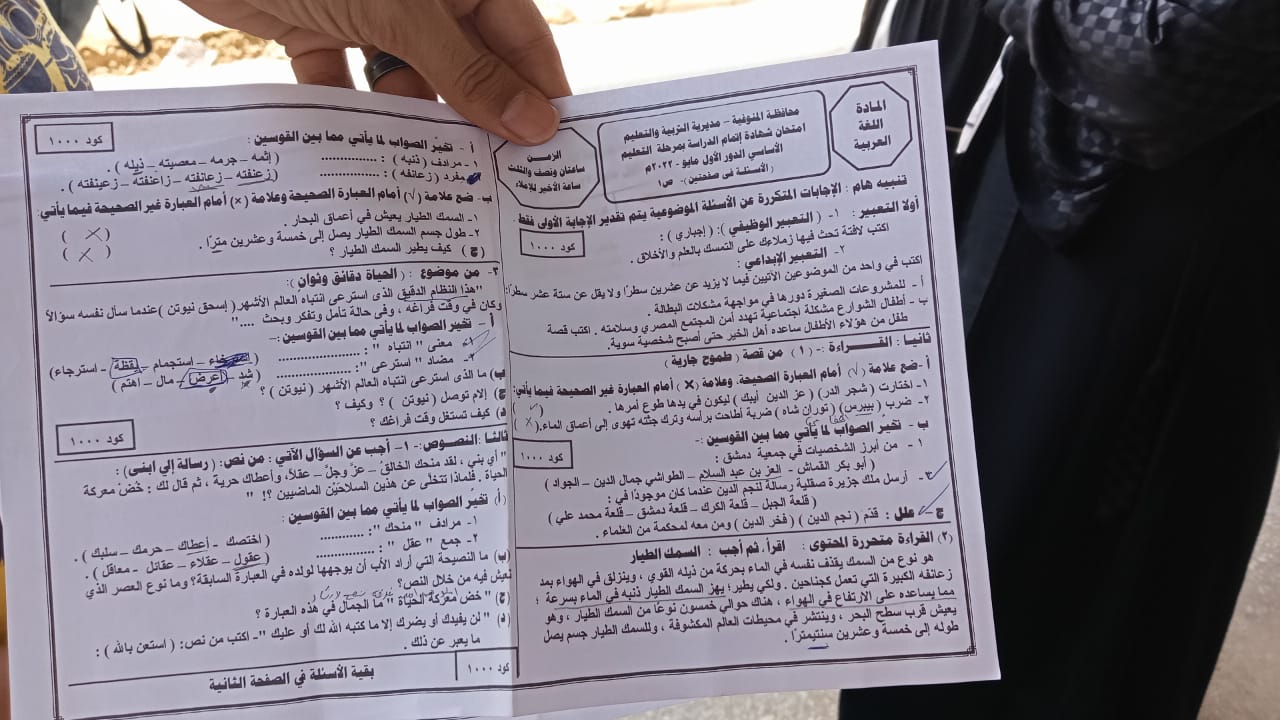 المادة
اللغة
العربية
محافظة المنوفية – مديرية التربية والتعليم
امتحان شهادة إتمام الدراسة بمرحلة التعليم
الأساسي الدور الأول مايو - ٢٠٢٢م
( الأسئلة في صفحتين)- ص١
الزمن
ساعتان ونصف والثلث
ساعة الأخير للإملاء
تنبيه هام : الإجابات المتكررة عن الأسئلة الموضوعية يتم تقدير الإجابة الأولى فقط
أولا التعبير : ١- ( التعبير الوظيفي ): ( إجباري ) :
كود ١٠٠٠
اكتب لافتة تحث فيها زملاءك على التمسك بالعلم والأخلاق .
٢- التعبير الإبداعي :
اكتب في واحد من الموضوعين الآتيين فيما لا يزيد عن عشرين سطرًا ولا يقل عن ستة عشر سطرًا:
أ - للمشروعات الصغيرة دورها في مواجهة مشكلات البطالة .
ب - أطفال الشوارع مشكلة اجتماعية تهدد أمن المجتمع المصري وسلامته . اكتب قصة
طفل من هؤلاء الأطفال ساعده أهل الخير حتى أصبح شخصية سوية.
ثانيا : القــراءة :- (١) من قصة ( طموح جارية )
أ -ضع علامة (√) أمام العبارة الصحيحة، وعلامة (×) أمام العبارة غير الصحيحة فيما يأتي:
١- اختارت ( شجر الدر) ( عز الدين أيبك ) ليكون في يدها طوع أمرها . ( ✓ )
٢- ضرب ( بيبرس) ( توران شاه) ضربة أطاحت برأسه وترك جثته تهوى إلى أعماق الماء.( × )
ب - تخيّر الصواب لما يأتي مما بين القوسين :-
كود ١٠٠٠
١ - من أبرز الشخصيات في جمعية دمشق :
( أبو بكر القماش – العز بن عبد السلام – الطواشي جمال الدين – الجواد )
٢- أرسل ملك جزيرة صقلية رسالة لنجم الدين عندما كان موجودًا في :
( قلعة الجبل – قلعة الكرك – قلعة دمشق – قلعة محمد علي )
ج – علل : قدّم ( نجم الدين ) ( فخر الدين ) ومن معه لمحكمة من العلماء .
(٢) القراءة متحررة المحتوى : اقرأ، ثم أجب : السمك الطيار
هو نوع من السمك يقذف نفسه في الماء بحركة من ذيله القوي ، وينزلق في الهواء بمد
زعانفه الكبيرة التي تعمل كجناحين . ولكي يطير؛ يهز السمك الطيار ذنبه في الماء بسرعة ؛
مما يساعده على الارتفاع في الهواء ، هناك حوالي خمسون نوعًا من السمك الطيار ، وهو
يعيش قرب سطح البحر ، وينتشر في محيطات العالم المكشوفة ، وللسمك الطيار جسم يصل
طوله إلى خمسة وعشرين سنتيمترًا .
كود ١٠٠٠
أ - تخيّر الصواب لما يأتي مما بين القوسين :
١ - مرادف ( ذنبه ) : .............. ( إثمه – جرمه – معصيته – ذيله ) .
مفرد ( زعانفه ) : .............. ( زعنفته – زعانفته – زاعنفته – زعينفته ) .
ب- ضع علامة (√) أمام العبارة الصحيحة وعلامة (×) أمام العبارة غير الصحيحة فيما يأتي:
١- السمك الطيار يعيش في أعماق البحار . ( × )
٢- طول جسم السمك الطيار يصل إلى خمسة وعشرين مترًا . ( × )
( ج ) كيف يطير السمك الطيار ؟
٣- من موضوع : ( الحياة دقائق وثوان ):
"هذا النظام الدقيق الذى استرعى انتباه العالم الأشهر ( إسحق نيوتن )عندما سأل نفسه سؤالاً
وكان في وقت فراغه ، وفى حالة تأمل وتفكر وبحث ...."
أ - تخيّر الصواب لما يأتي مما بين القوسين :-
١- معنى " انتباه " : ...................... ( – استجمام – يقظة – استرجاء)
٢- مضاد " استرعى ": ...................... ( شد – أعرض – مال – اهتم )
ب) ما الذى استرعى انتباه العالم الأشهر ( نيوتن ) ؟
ج) إلام توصل ( نيوتن ) ؟ وكيف ؟
د) كيف تستغل وقت فراغك ؟
كود ١٠٠٠
ثالثا :النصــوص:- ١- أجب عن السؤال الآتي : من نص: ( رسالة إلى ابنى) :
" أي بني ، لقد منحك الخالق – عزّ وجلّ – عقلاً، وأعطاك حرية ، ثم قال لك : خُضْ معركة
الحياة . فلماذا تتخلى عن هذين السلاحَيْن الماضيين ؟! "
(أ) تخيّر الصواب لما يأتي مما بين القوسين :
١- مرادف " منحك ": ............ ( اختصك – أعطاك – حرمك – سلبك ) .
٢- جمع " عقل " : ................ ( عقول – عقلاء – عقائل – معاقل ) .
(ب) ما النصيحة التي أراد الأب أن يوجهها لولده في العبارة السابقة؟ وما نوع العصر الذي
نعيش فيه من خلال النص؟
(ج) " خض معركة الحياة " ما الجمال في هذه العبارة ؟
(د) " لن يفيدك أو يضرك إلا ما كتبه الله لك أو عليك "- اكتب من نص: ( استعن بالله ) :
ما يعبر عن ذلك .
كود ١٠٠٠
بقية الأسئلة في الصفحة الثانية